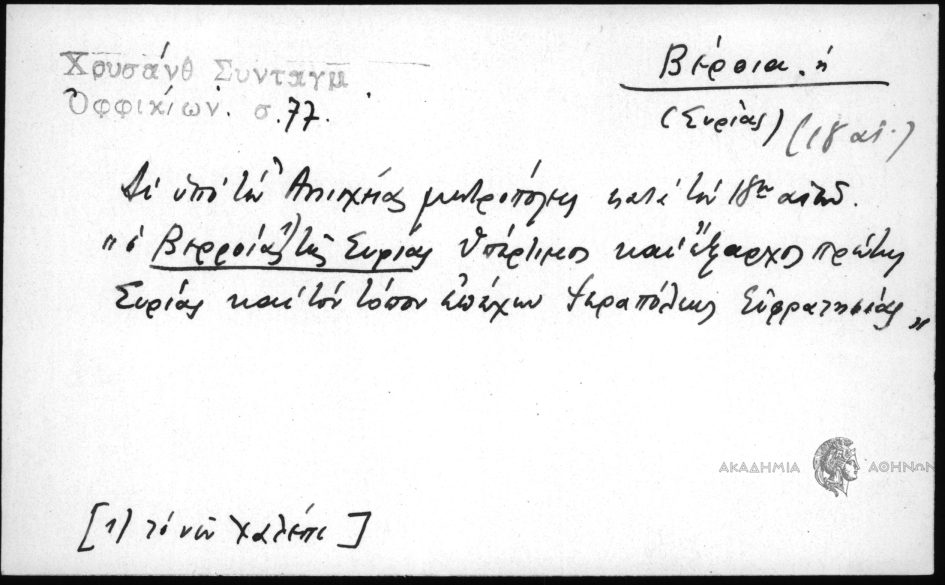 Χρυσάνθ Συνταγμ
Ὀφφικίων. σ. 77.
Βέρροια. ἡ
(Συρίας) (18 αἰ.)
Αἱ ὑπὸ τὸν Ἀντιοχείας μητροπόλεις κατὰ τὸν 18ον αἰῶνα.
"ὁ Βερροίας 1) τῆς Συρίας ὑπέρτιμος καὶ ἔξαρχος πρώτης
Συρίας καὶ τὸν τόπον ἐπέχων Ἱεραπόλεως Εὐφρατησίας"
ΑΚΑΔΗΜΙΑ ΑΘΗΝΩΝ
[1) τὸ νῦν Χαλέπι]